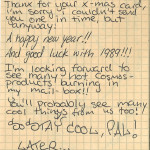 Thank for your x-mas card,
I'm sorry I couldn't send
you one in time, but
anyway:
A happy new year!!
And good luck with 1989!!!
I'm looking forward to
see many hot cosmos-
products burning in
my mail-box!!
You'll probably see many
cool things from us too!
So STAY COOL, PAL.
LATER...